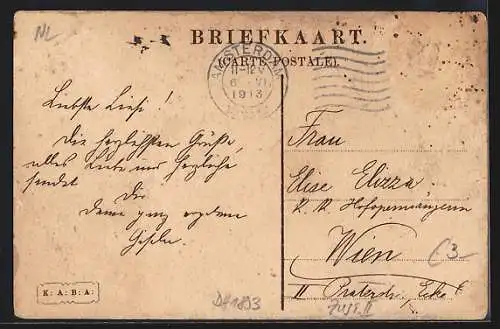 NL
BRIEFKAART.
(CARTE POSTALE).
AMSTERDAM
11-12V
6 VI
1913
Liebste Liesi!
Die herzlichsten Grüße,
alles Liebe und herzliche
sendet
Dir
Deine ganz ergebene
Frau
Elise Elizza
K. K. Hofopernsängerin
Wien
II Praterstr.
3-
K: A: B: A: